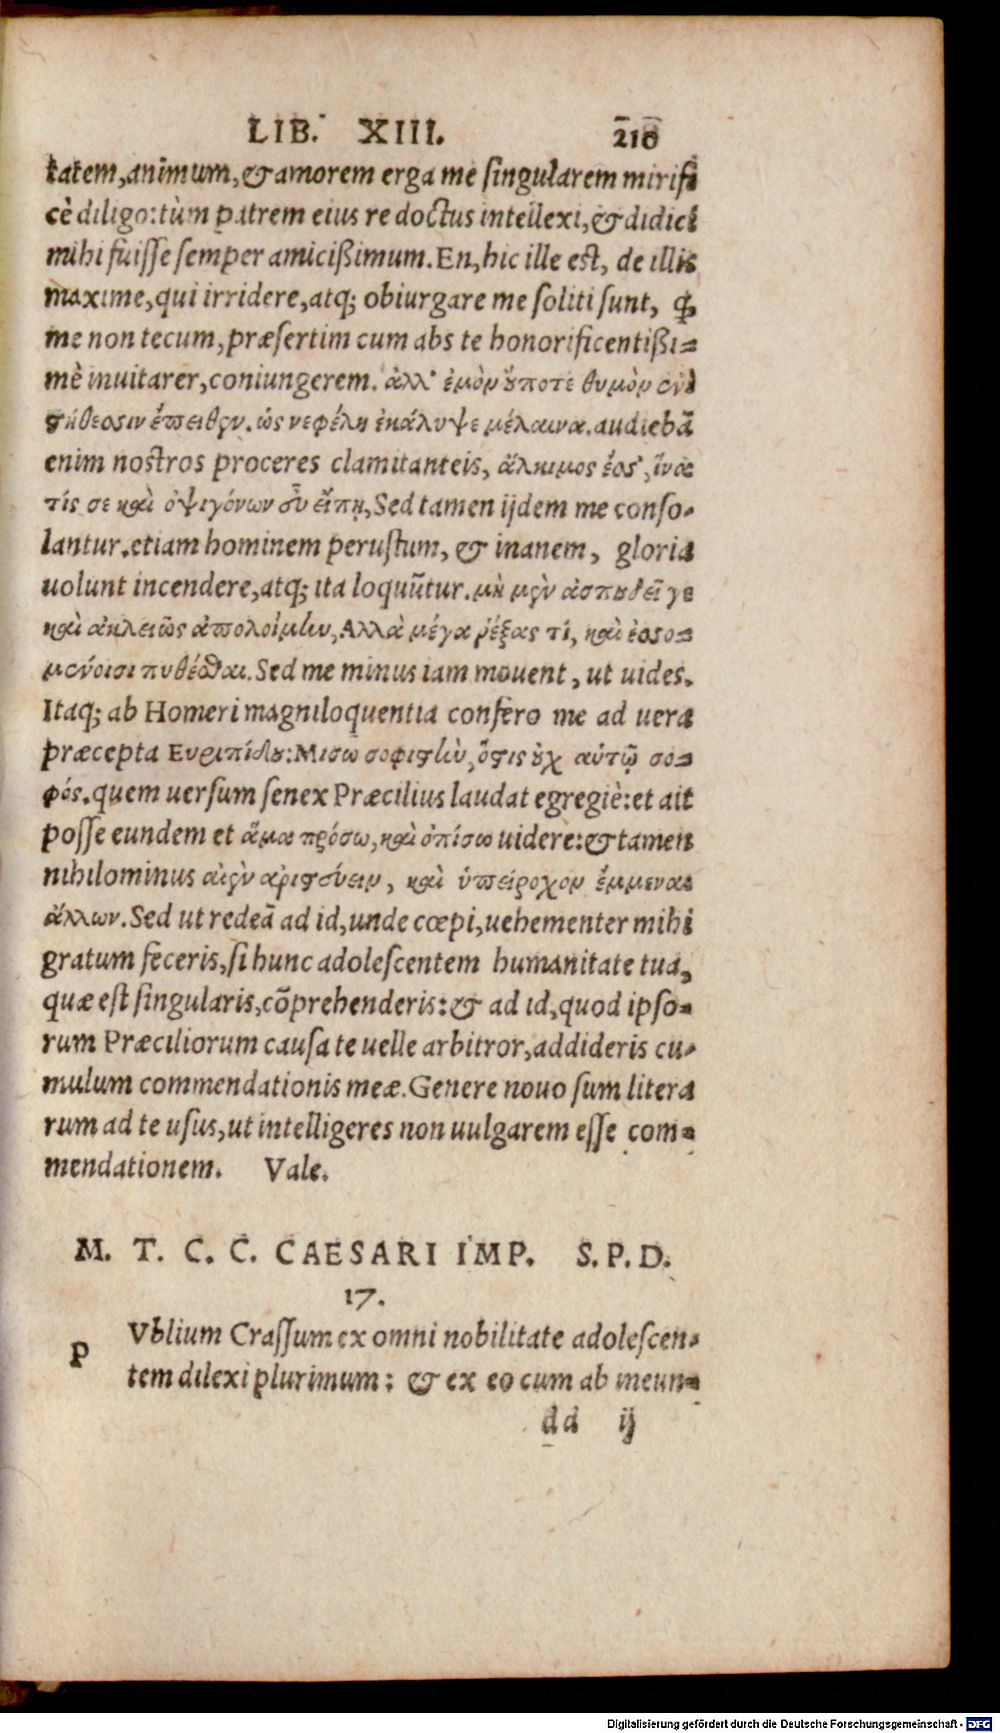 LIB. XIII. 210
tatem, animum, & amorem erga me singularem mirifi
cè diligo: tùm patrem eius re doctus intellexi, & didici
mihi fuisse semper amicißimum. En, hic ille est, de illis
maxime, qui irridere, atq; obiurgare me soliti sunt, ꝙ
me non tecum, præsertim cum abs te honorificentißi-
mè inuitarer, coniungerem. ἀλλ' ἐμὸν οὔποτε θυμὸν ἐνὶ
στήθεοσιν ἔπειθεν. ὡς νεφέλη ἐκάλυψε μέλαινα. audiebā
enim nostros proceres clamitanteis, ἄλκιμος ἔοσ', ἵνα
τίς σε καὶ ὀψιγόνων εὖ εἴπῃ, Sed tamen ijdem me conso-
lantur. etiam hominem perustum, & inanem, gloria
uolunt incendere, atq; ita loquūtur. μὴ μὲν ἀσπουδεῖ γε
καὶ ἀκλειῶς ἀπολοίμην, Αλλὰ μέγα ῥέξας τί, καὶ ἐοσο-
μένοισι πυθέσθαι. Sed me minus iam mouent, ut uides.
Itaq; ab Homeri magniloquentia confero me ad uera
præcepta Ευριπίδου: Μισῶ σοφιστὴν, ὅστις οὐχ αὑτῷ σο-
φός. quem uersum senex Præcilius laudat egregiè: et ait
posse eundem et ἅμα πρόσω, καὶ ὀπίσω uidere: & tamen
nihilominus αἰὲν ἀριστεύειν, καὶ ὑπείροχον ἔμμεναι
ἄλλων. Sed ut redeā ad id, unde cœpi, uehementer mihi
gratum feceris, si hunc adolescentem humanitate tua,
quæ est singularis, cōprehenderis: & ad id, quod ipso-
rum Præciliorum causa te uelle arbitror, addideris cu-
mulum commendationis meæ. Genere nouo sum litera
rum ad te usus, ut intelligeres non uulgarem esse com-
mendationem. Vale.
M. T. C. C. CAESARI IMP. S. P. D.
17.
P Vblium Crassum ex omni nobilitate adolescen-
tem dilexi plurimum: & ex eo cum ab ineun-
dd ij
Digitalisierung gefördert durch die Deutsche Forschungsgemeinschaft - DFG